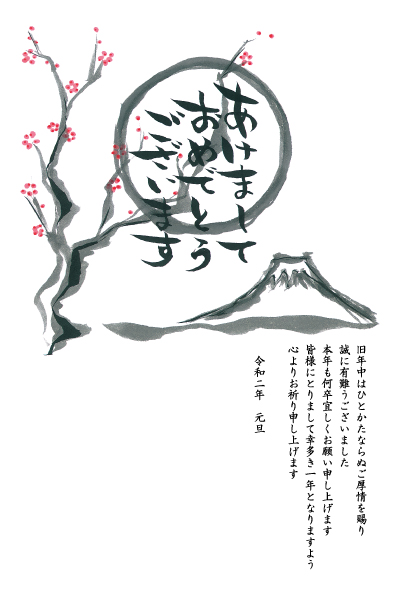 あけまして
おめでとう
ございます
旧年中はひとかたならぬご厚情を賜り
誠に有難うございました
本年も何卒宜しくお願い申し上げます
皆様にとりまして幸多き一年となりますよう
心よりお祈り申し上げます
令和二年　元旦